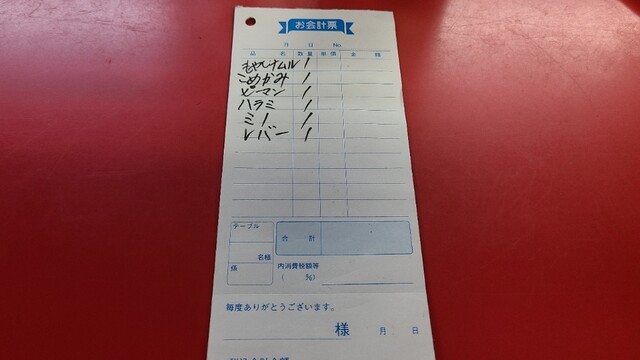 お会計票
月 日 No.
品 名 数量 単価 金 額
もやしナムル 1
こめかみ 1
ピーマン 1
ハラミ 1
ミノ 1
レバー 1
テーブル
名様
係
合 計
内消費税額等
( %)
毎度ありがとうございます。
様 月 日